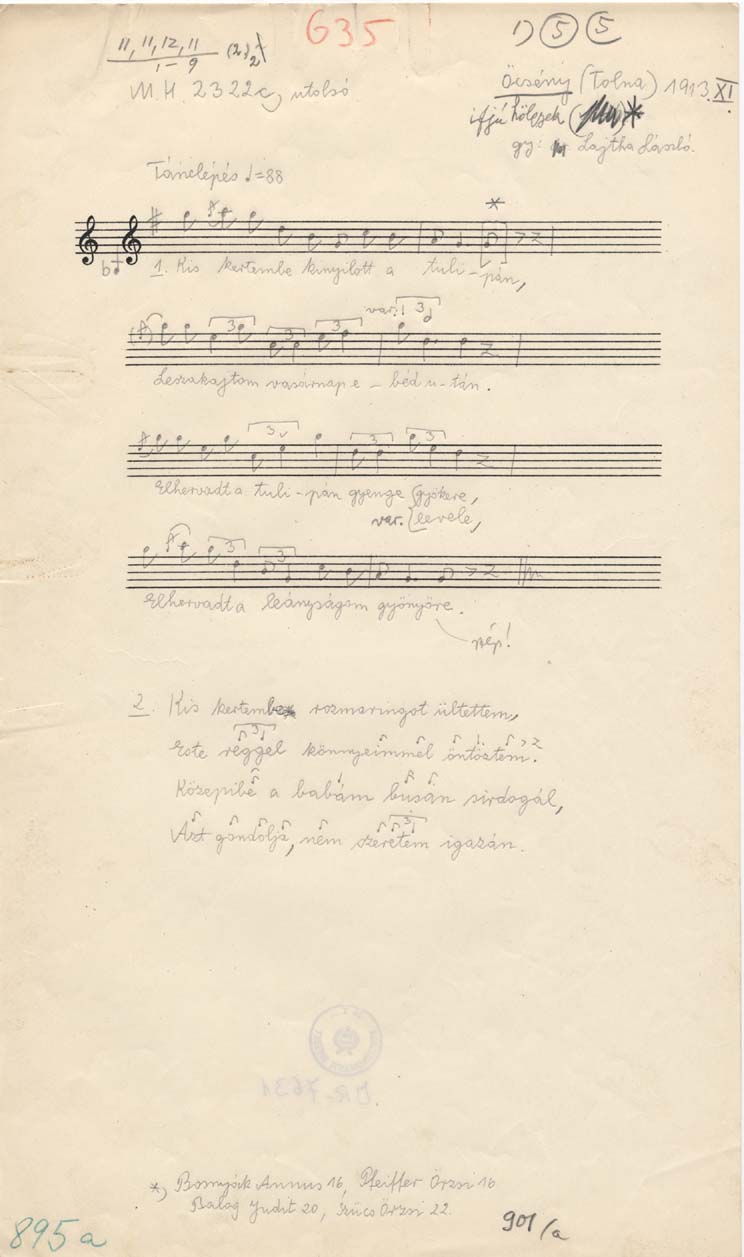 635
1) 5 5
11, 11, 12, 11 (2)
1 – 9
2
M.H. 2322c, utolsó
Öcsény (Tolna) 1913.XI.
ifjú hölgyek *
gy: Lajtha László.
Tánclépés ♩=88
*
1. Kis kertembe kinyílott a tuli-pán,
var.: 3
3 3 3
Leszakajtom vasárnap e - béd u-tán.
3 3 3
Elhervadt a tuli-pán gyenge gyökere,
var. levele,
3 3
Elhervadt a leányságom gyönyöre.
nép!
2. Kis kertembe rozmaringot ültettem,
3
Este réggel könnyeimmel öntöztem.
Közepibe a babám busan sirdogál,
3
Azt gondolja, nem szeretem igazán.
*) Bosnyák Annus 16, Pfeiffer Örzsi 16
Balog Judit 20, Szücs Örzsi 22.
895a
901/a